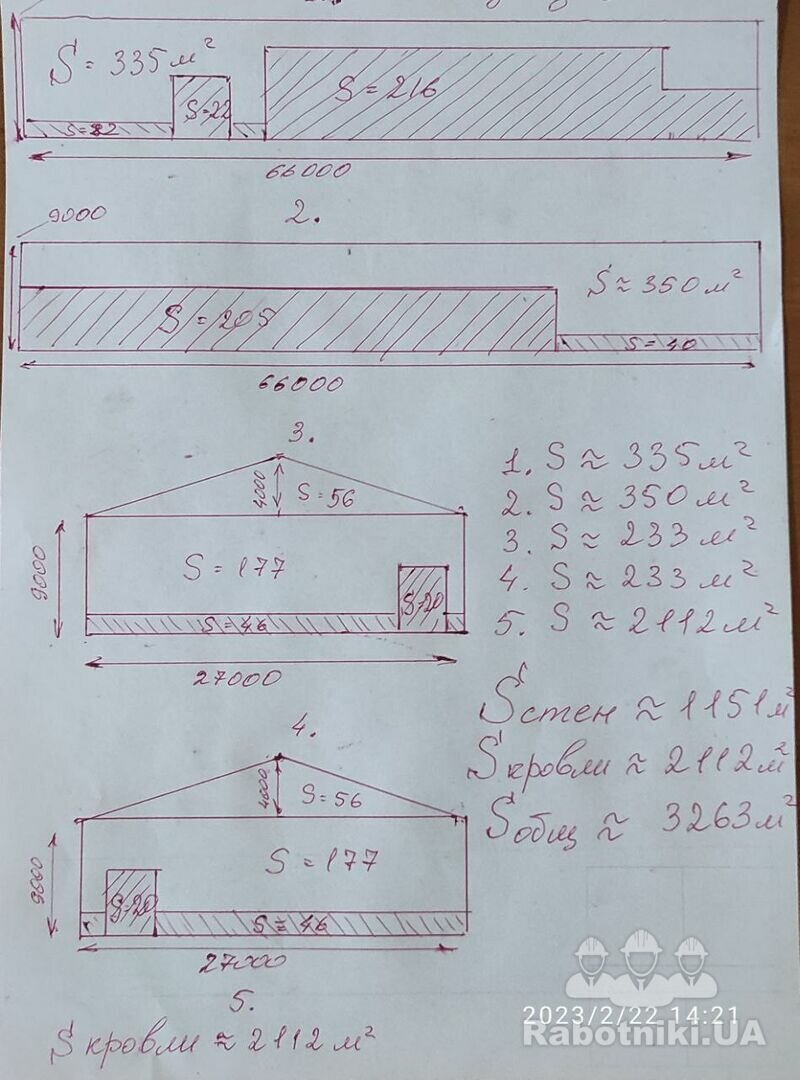 S = 335 м²
S=22
S = 216
S=22
66000
9000
2.
S = 205
S ≈ 350 м²
S = 40
66000
3.
4000
S = 56
9000
S = 177
S=20
S = 46
27000
1. S ≈ 335 м²
2. S ≈ 350 м²
3. S ≈ 233 м²
4. S ≈ 233 м²
5. S ≈ 2112 м²
S стен ≈ 1151 м²
S кровли ≈ 2112 м²
S общ ≈ 3263 м²
4.
4000
S = 56
9000
S = 177
S=20
S = 46
27000
5.
S кровли ≈ 2112 м²
2023/2/22 14:21
Rabotniki.UA